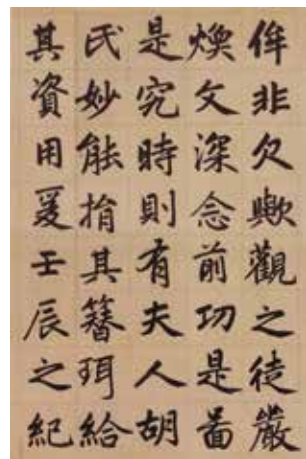 侔非欠歟觀之徒嚴
煥文深念前功是啚
是究時則有夫人胡
氏妙能捐其簪珥給
其資用爰壬辰之紀